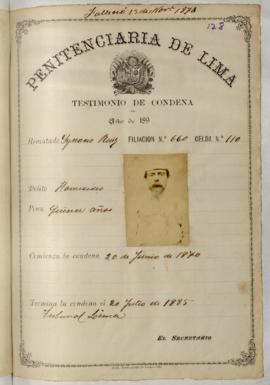 Falleció 13 de Nov. 1878
128
PENITENCIARIA DE LIMA
TESTIMONIO DE CONDENA
Año de 189
Rematado Ignacio Ruiz FILIACION N.º 660 CELDA N.º 110
Delito Homicidio
Pena Quince años
Comienza la condena 20 de Junio de 1870
Termina la condena el 20 Julio de 1885
Tribunal Lima
EL SECRETARIO